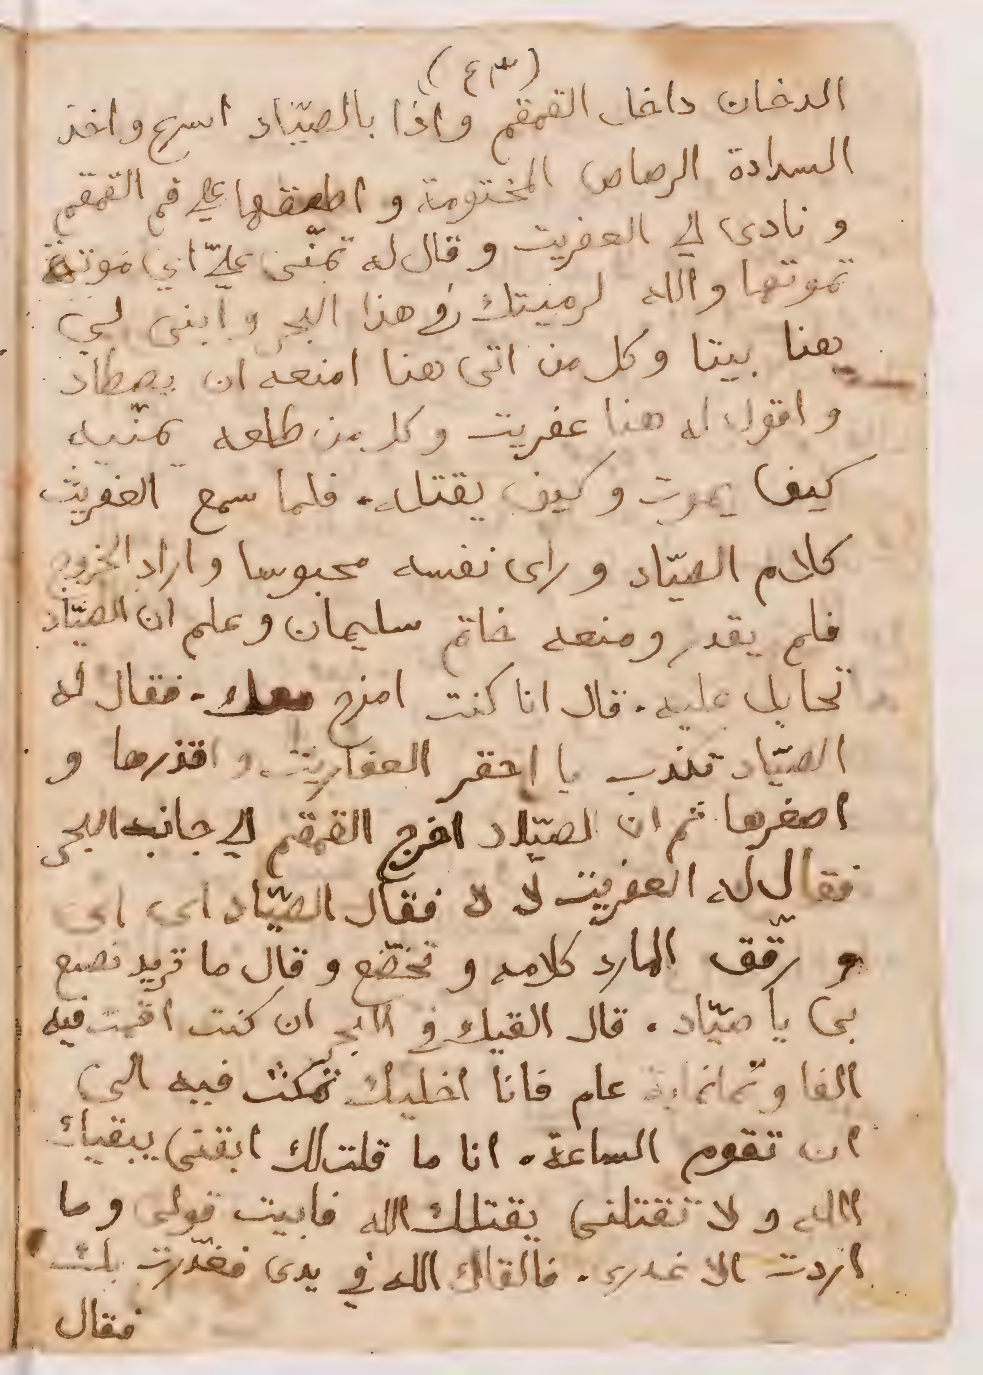 (٤٣)
الدخان داخل القمقم واذا بالصيّاد اسرع واخذ
السدادة الرصاص المختومة و اطبقها علي فم القمقم
و نادى الي العفريت و قال له تمنّى عليّ اي موتة
تموتها والله لرميتك في هذا البحر وابنى لي
هنا بيتا وكل من اتى هنا امنعه ان يصطاد
و اقول له هنا عفريت وكل من طلعه يمنّيه
كيف يموت وكيف يقتله. فلما سمع العفريت
كلام الصيّاد و راى نفسه محبوسا واراد الخروج
فلم يقدر ومنعه خاتم سليمان وعلم ان الصيّاد
تحايل عليه. قال انا كنت امزح معك. فقال له
الصيّاد تكذب يا احقر العفاريت و اقذرها و
اصغرها ثم ان الصيّاد اخرج القمقم الي جانب البحر
فقال له العفريت لا لا فقال الصيّاد اى اى
و رقّق المارد كلامه و تخضّع وقال ما تريد تصنع
بى يا صيّاد. قال القيك في البحر ان كنت اقمت فيه
الفا وثمانماية عام فانا اخليك تمكث فيه الى
ان تقوم الساعة. انا ما قلت لك ابقنى يبقيك
الله و لا تقتلنى يقتلك الله فابيت قولى وما
اردت الا غدرى. فالقاك الله في يدى فغدرت بك
فقال